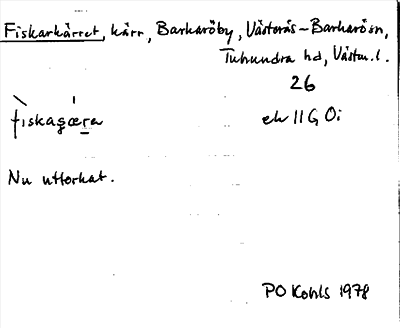 Fiskarkärret, kärr, Barkaröby, Västerås-Barkarö sn,
Tuhundra hd, Västm. l.
26
fiskaʂæra
ek 11 G 0i
Nu uttorkat.
PO Kohls 1978